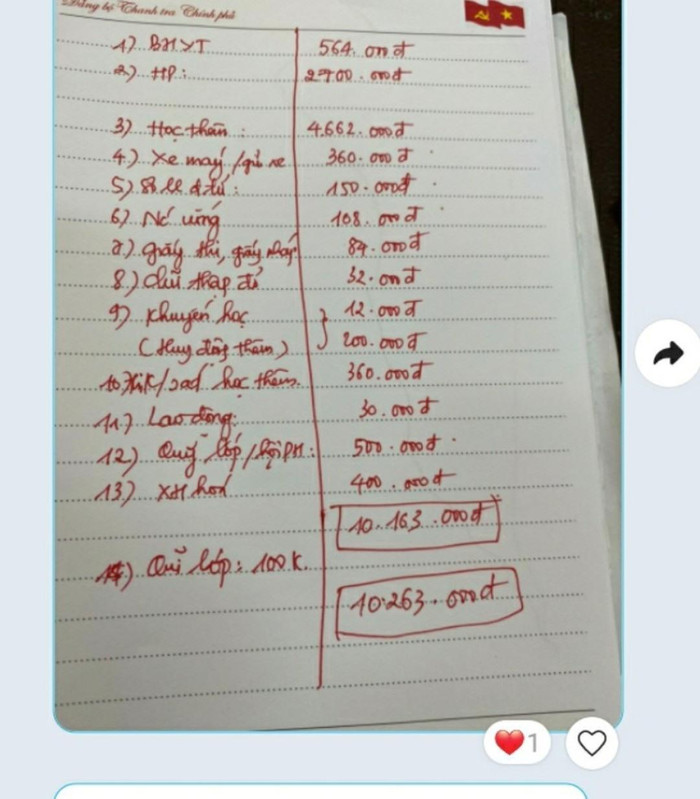 Đảng bộ Thanh tra Chính phủ
1) BHYT 564.000đ
2) HP: 2700.000đ
3) Học thêm: 4.662.000đ
4) Xe máy/gửi xe 360.000đ
5) Sổ LL đ.tử: 150.000đ
6) Nc uống 108.000đ
7) giấy thi, giấy nháp 84.000đ
8) chữ thập đỏ 32.000đ
9) Khuyến học 12.000đ
(Huy động thêm) 200.000đ
10 học thêm. 360.000đ
11) Lao động: 30.000đ
12) Quỹ lớp/hội PH: 500.000đ
13) XH hoá 400.000đ
10.163.000đ
14) Quĩ lớp: 100K.
10.263.000đ
1